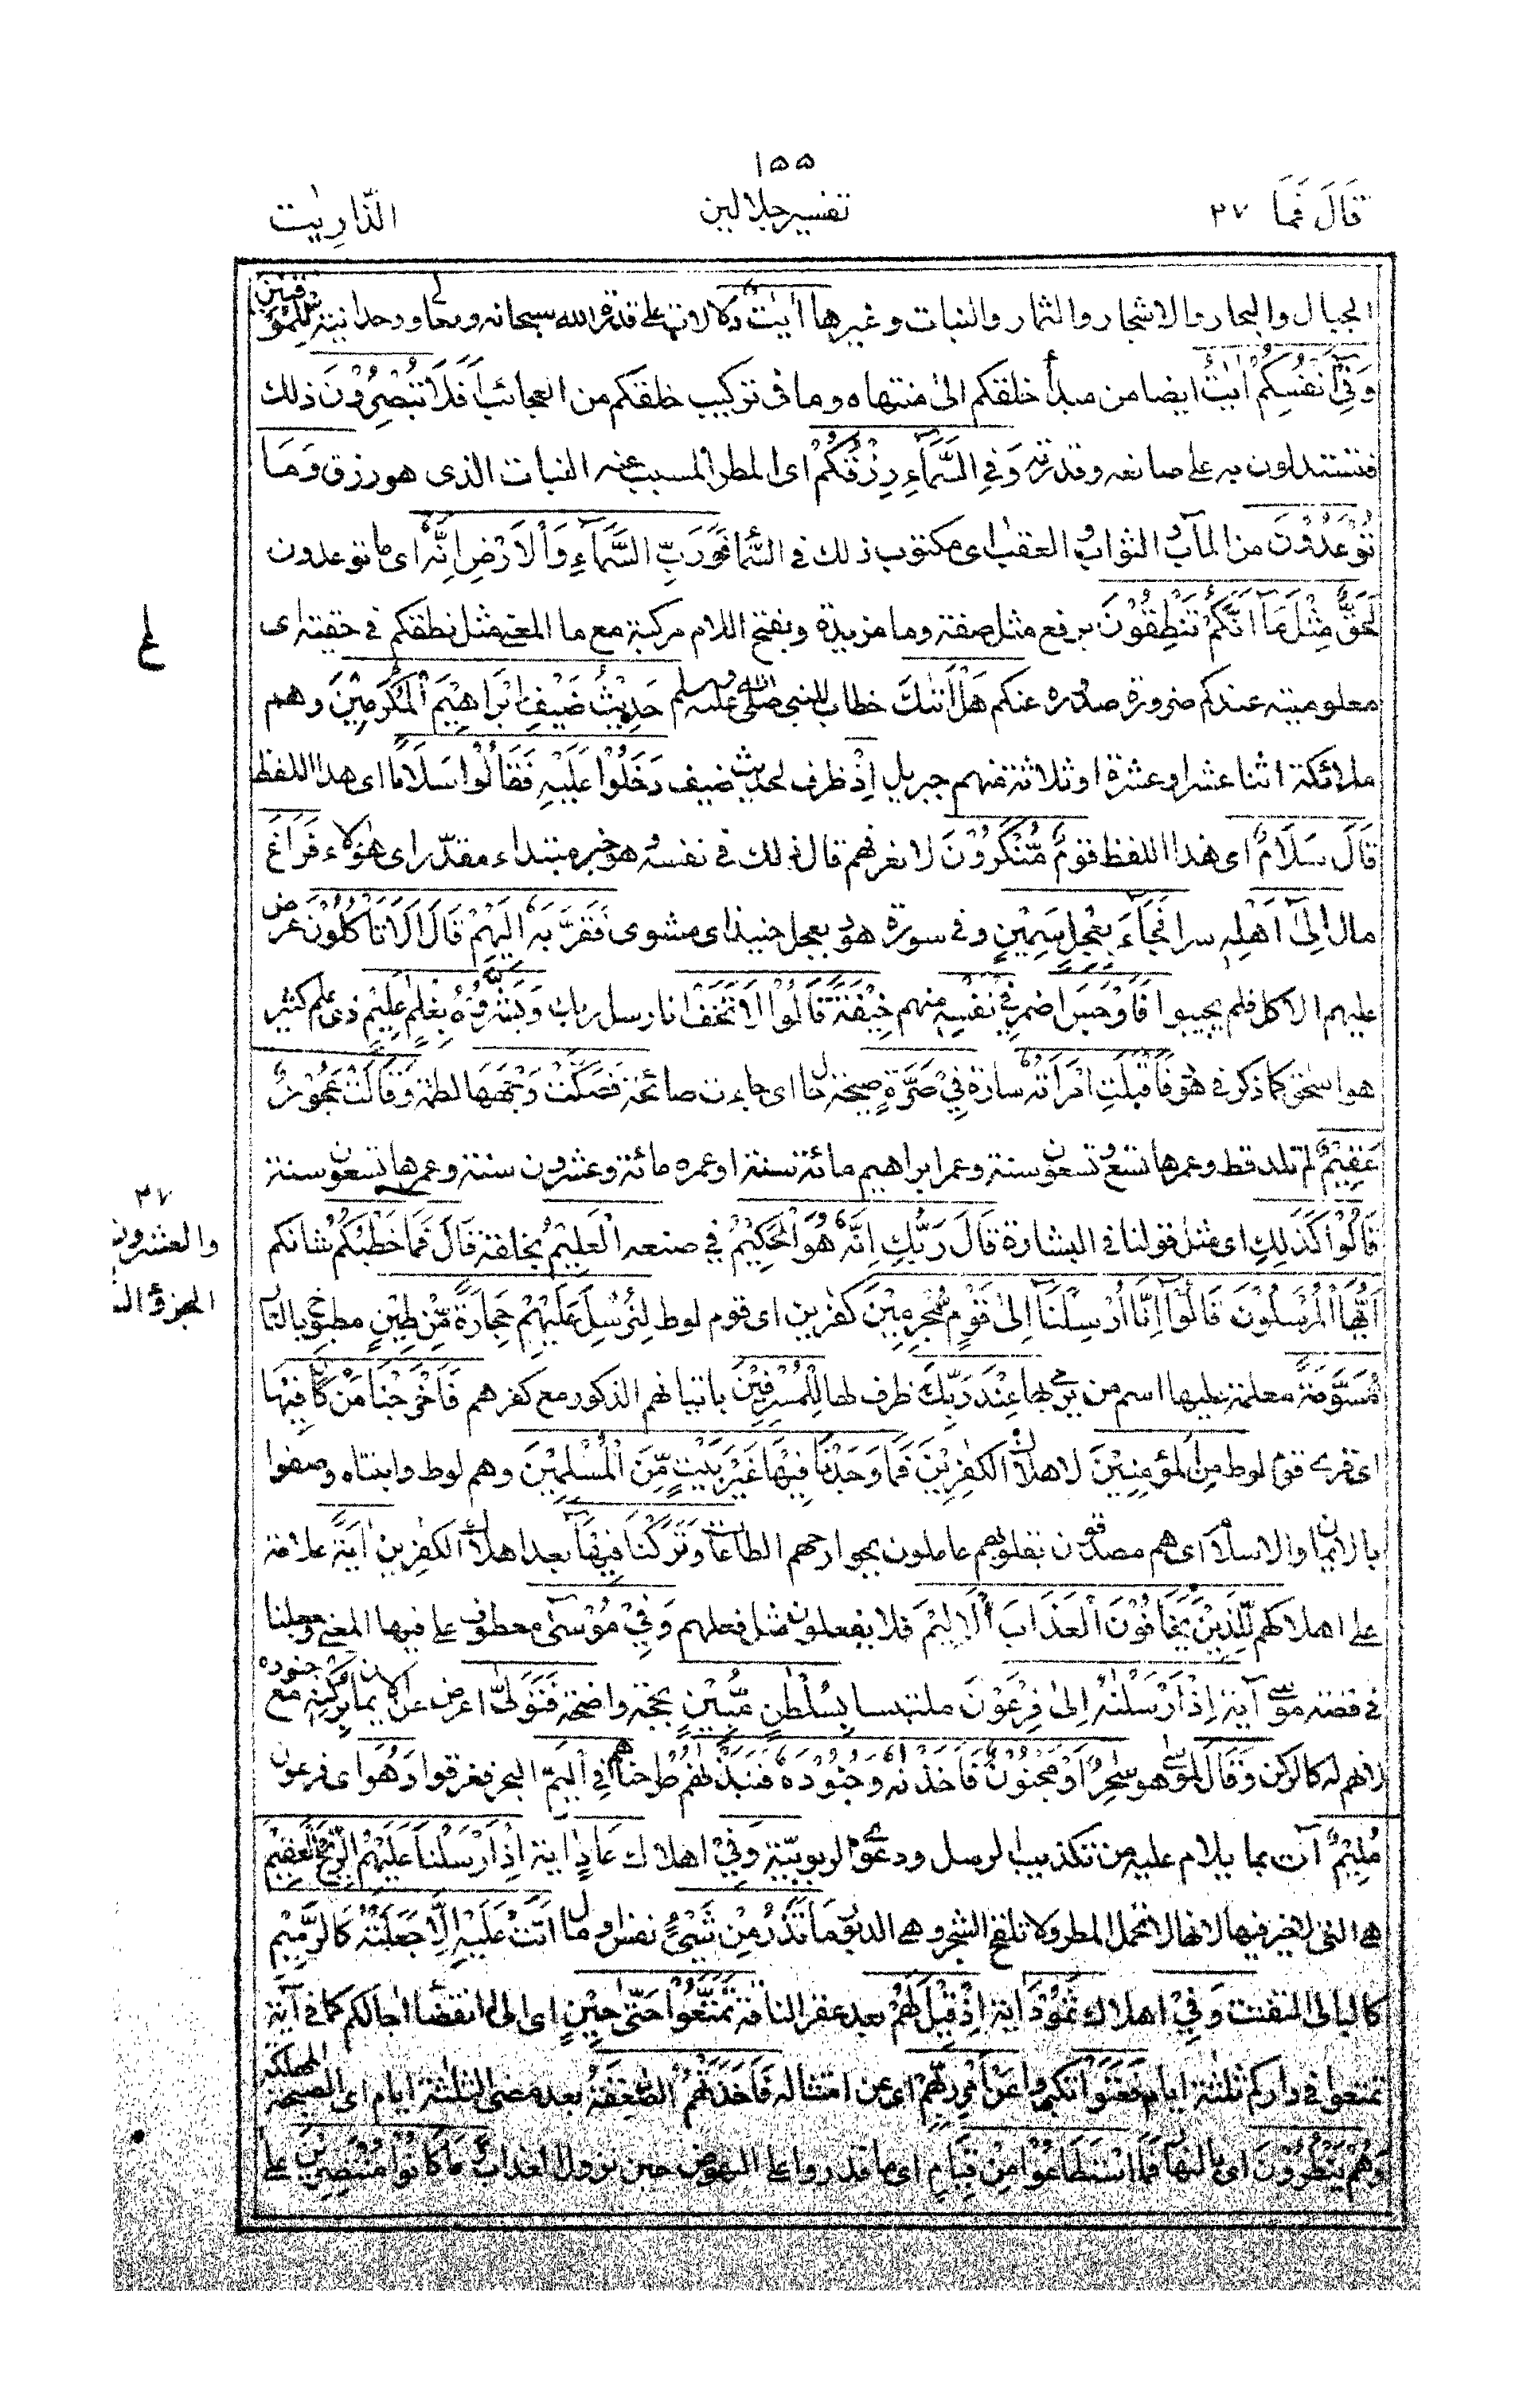 ١٥٥
قَالَ فَمَا ٢٧
تفسير جلالين
الذّٰارِيٰت
الجبال والبحار والاشجار والثمار والنبات وغيرها اٰيٰتٌ دلالات على قدرة الله سبحانه وتعالى ووحدانيته لِّلْمُوْقِنِيْنَ
وَفِيْٓ اَنْفُسِكُمْ اٰيٰتٌ ايضا من مبدأ خلقكم الى منتهاه وما فى تركيب خلقكم من العجائب اَفَلَا تُبْصِرُوْنَ ذلك
فتستدلون به على صانعه وقدرته وَفِي السَّمَآءِ رِزْقُكُمْ اى المطر المسبب عنه النبات الذى هو رزق وَمَا
تُوْعَدُوْنَ من المآب والثواب والعقاب اى مكتوب ذلك فى السماء فَوَرَبِّ السَّمَآءِ وَالْاَرْضِ اِنَّهٗ اى ما توعدون
لَحَقٌّ مِّثْلَ مَآ اَنَّكُمْ تَنْطِقُوْنَ برفع مثل صفة وما مزيدة وبفتح اللام مركبة مع ما المعنى مثل نطقكم فى حقيته اى
معلوميته عندكم ضرورة صدوره عنكم هَلْ اَتٰىكَ خطاب للنبى صلى الله عليه وسلم حَدِيْثُ ضَيْفِ اِبْرَاهِيْمَ الْمُكْرَمِيْنَ وهم
ملائكة اثنا عشر او عشرة او ثلاثة منهم جبريل اِذْ ظرف لحديث ضيف دَخَلُوْا عَلَيْهِ فَقَالُوْا سَلَامًا اى هذا اللفظ
قَالَ سَلَامٌ اى هذا اللفظ قَوْمٌ مُّنْكَرُوْنَ لا نعرفهم قال ذلك فى نفسه هو خبر مبتداء مقدّر اى هٰؤلاء فَرَاغَ
مال اِلٰٓى اَهْلِهٖ سرا فَجَآءَ بِعِجْلٍ سَمِيْنٍ وفى سورة هود بعجل حنيذ اى مشوى فَقَرَّبَهٗٓ اِلَيْهِمْ قَالَ اَلَا تَأْكُلُوْنَ عرض
عليهم الاكل فلم يجيبوا فَاَوْجَسَ اضمر فى نفسه مِنْهُمْ خِيْفَةً قَالُوْا لَا تَخَفْ انا رسل ربك وَبَشَّرُوْهُ بِغُلٰمٍ عَلِيْمٍ ذى علم كثير
هو اسحٰق كما ذكر فى هود فَاَقْبَلَتِ امْرَاَتُهٗ سارة فِيْ صَرَّةٍ صيحة حال اى جاءت صائحة فَصَكَّتْ وَجْهَهَا لطمته وَقَالَتْ عَجُوْزٌ
عَقِيْمٌ لم تلد قط وعمرها تسع وتسعون سنة وعمر ابراهيم مائة سنة او عمره مائة وعشرون سنة وعمرها تسعون سنة
قَالُوْا كَذٰلِكِ اى مثل قولنا فى البشارة قَالَ رَبُّكِ اِنَّهٗ هُوَ الْحَكِيْمُ فى صنعه الْعَلِيْمُ بخلقه قَالَ فَمَا خَطْبُكُمْ شانكم
اَيُّهَا الْمُرْسَلُوْنَ قَالُوْٓا اِنَّآ اُرْسِلْنَآ اِلٰى قَوْمٍ مُّجْرِمِيْنَ كٰفرين اى قوم لوط لِنُرْسِلَ عَلَيْهِمْ حِجَارَةً مِّنْ طِيْنٍ مطبوخ بالنار
مُّسَوَّمَةً معلمة عليها اسم من يرمى بها عِنْدَ رَبِّكَ ظرف لها لِلْمُسْرِفِيْنَ باتيانهم الذكور مع كفرهم فَاَخْرَجْنَا مَنْ كَانَ فِيْهَا
اى قرى قوم لوط مِنَ الْمُؤْمِنِيْنَ لاهلاك الكٰفرين فَمَا وَجَدْنَا فِيْهَا غَيْرَ بَيْتٍ مِّنَ الْمُسْلِمِيْنَ وهم لوط وابنتاه وصفوا
بالايمان والاسلام اى هم مصدقون بقلوبهم عاملون بجوارحهم الطاعات وَتَرَكْنَا فِيْهَآ بعد اهلاك الكٰفرين اٰيَةً علامة
على اهلاكهم لِّلَّذِيْنَ يَخَافُوْنَ الْعَذَابَ الْاَلِيْمَ فلا يفعلون مثل فعلهم وَفِيْ مُوْسٰٓى معطوف على فيها المعنى وجعلنا
فى قصة موسى آية اِذْ اَرْسَلْنٰهُ اِلٰى فِرْعَوْنَ ملتبسا بِسُلْطٰنٍ مُّبِيْنٍ بحجة واضحة فَتَوَلّٰى اعرض عن الايمان بِرُكْنِهٖ مع جنوده
لانهم له كالركن وَقَالَ لموسى هو سٰحِرٌ اَوْ مَجْنُوْنٌ فَاَخَذْنٰهُ وَجُنُوْدَهٗ فَنَبَذْنٰهُمْ طرحناهم فِى الْيَمِّ البحر فغرقوا وَهُوَ اى فرعون
مُلِيْمٌ آت بما يلام عليه من تكذيب الرسل ودعوى الربوبيّة وَفِيْ اهلاك عَادٍ اٰية اِذْ اَرْسَلْنَا عَلَيْهِمُ الرِّيْحَ الْعَقِيْمَ
هى التى لا خير فيها لانها لا تحمل المطر ولا تلقح الشجر وهى الدبور مَا تَذَرُ مِنْ شَيْءٍ نفس او مال اَتَتْ عَلَيْهِ اِلَّا جَعَلَتْهُ كَالرَّمِيْمِ
كالبالى المتفتت وَفِيْ اهلاك ثَمُوْدَ اٰية اِذْ قِيْلَ لَهُمْ بعد عقر الناقة تَمَتَّعُوْا حَتّٰى حِيْنٍ اى الى انقضاء اٰجالكم كما فى آية
تمتعوا فى داركم ثلٰثة ايام فَعَتَوْا تكبروا عَنْ اَمْرِ رَبِّهِمْ اى عن امتثاله فَاَخَذَتْهُمُ الصّٰعِقَةُ بعد مضى الثلٰثة ايام اى الصيحة المهلكة
وَهُمْ يَنْظُرُوْنَ اى بالنهار فَمَا اسْتَطَاعُوْا مِنْ قِيَامٍ اى ما قدروا على النهوض حين نزول العذاب وَّمَا كَانُوْا مُنْتَصِرِيْنَ على
٢٧
والعشرون
الجزؤ